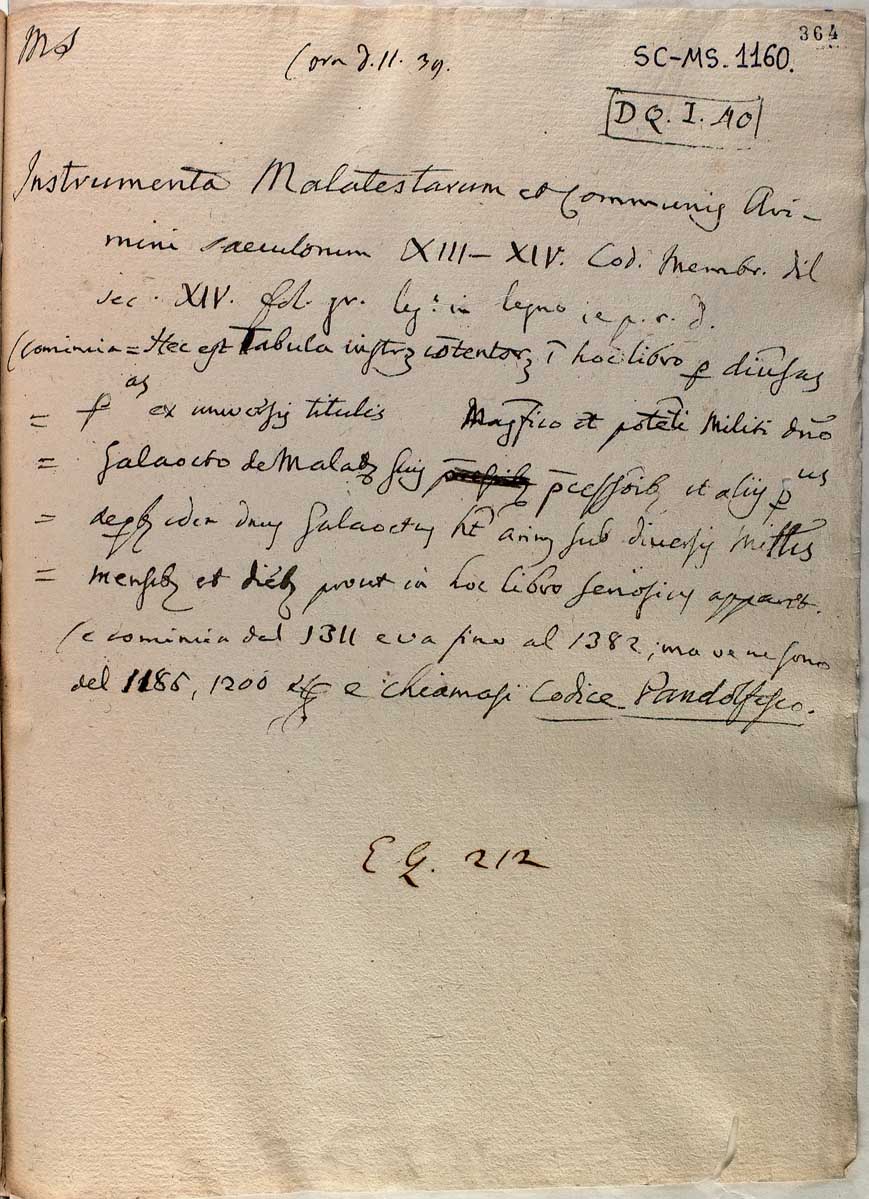 364
MS
(ora D. II. 39.
SC-MS. 1160.
D Q. I. 40
Instrumenta Malatestarum et Communis Ari-
mini saeculorum XIII – XIV. Cod. Membr. del
sec. XIV. fol. gr. leg: in legno
(comincia = Hec est Tabula instrꝝ cōtentoꝝ ī hoc libro ꝑ diūsas
= ꝑ as ex universis titulis Magfico et potēti Militi dno
= Galaocto de Malatꝫ suis p̄cessoribꝫ et aliis ꝑ us
= de qbꝫ idem dnus Galaoctus ht arim sub diversis Millis
= mensibꝫ et diebꝫ prout in hoc libro seriosius apparet.
(e comincia dal 1311 e va fino al 1382; ma ve ne sono
del 1186, 1200 e chiamasi Codice Pandolfesco.
E G. 212